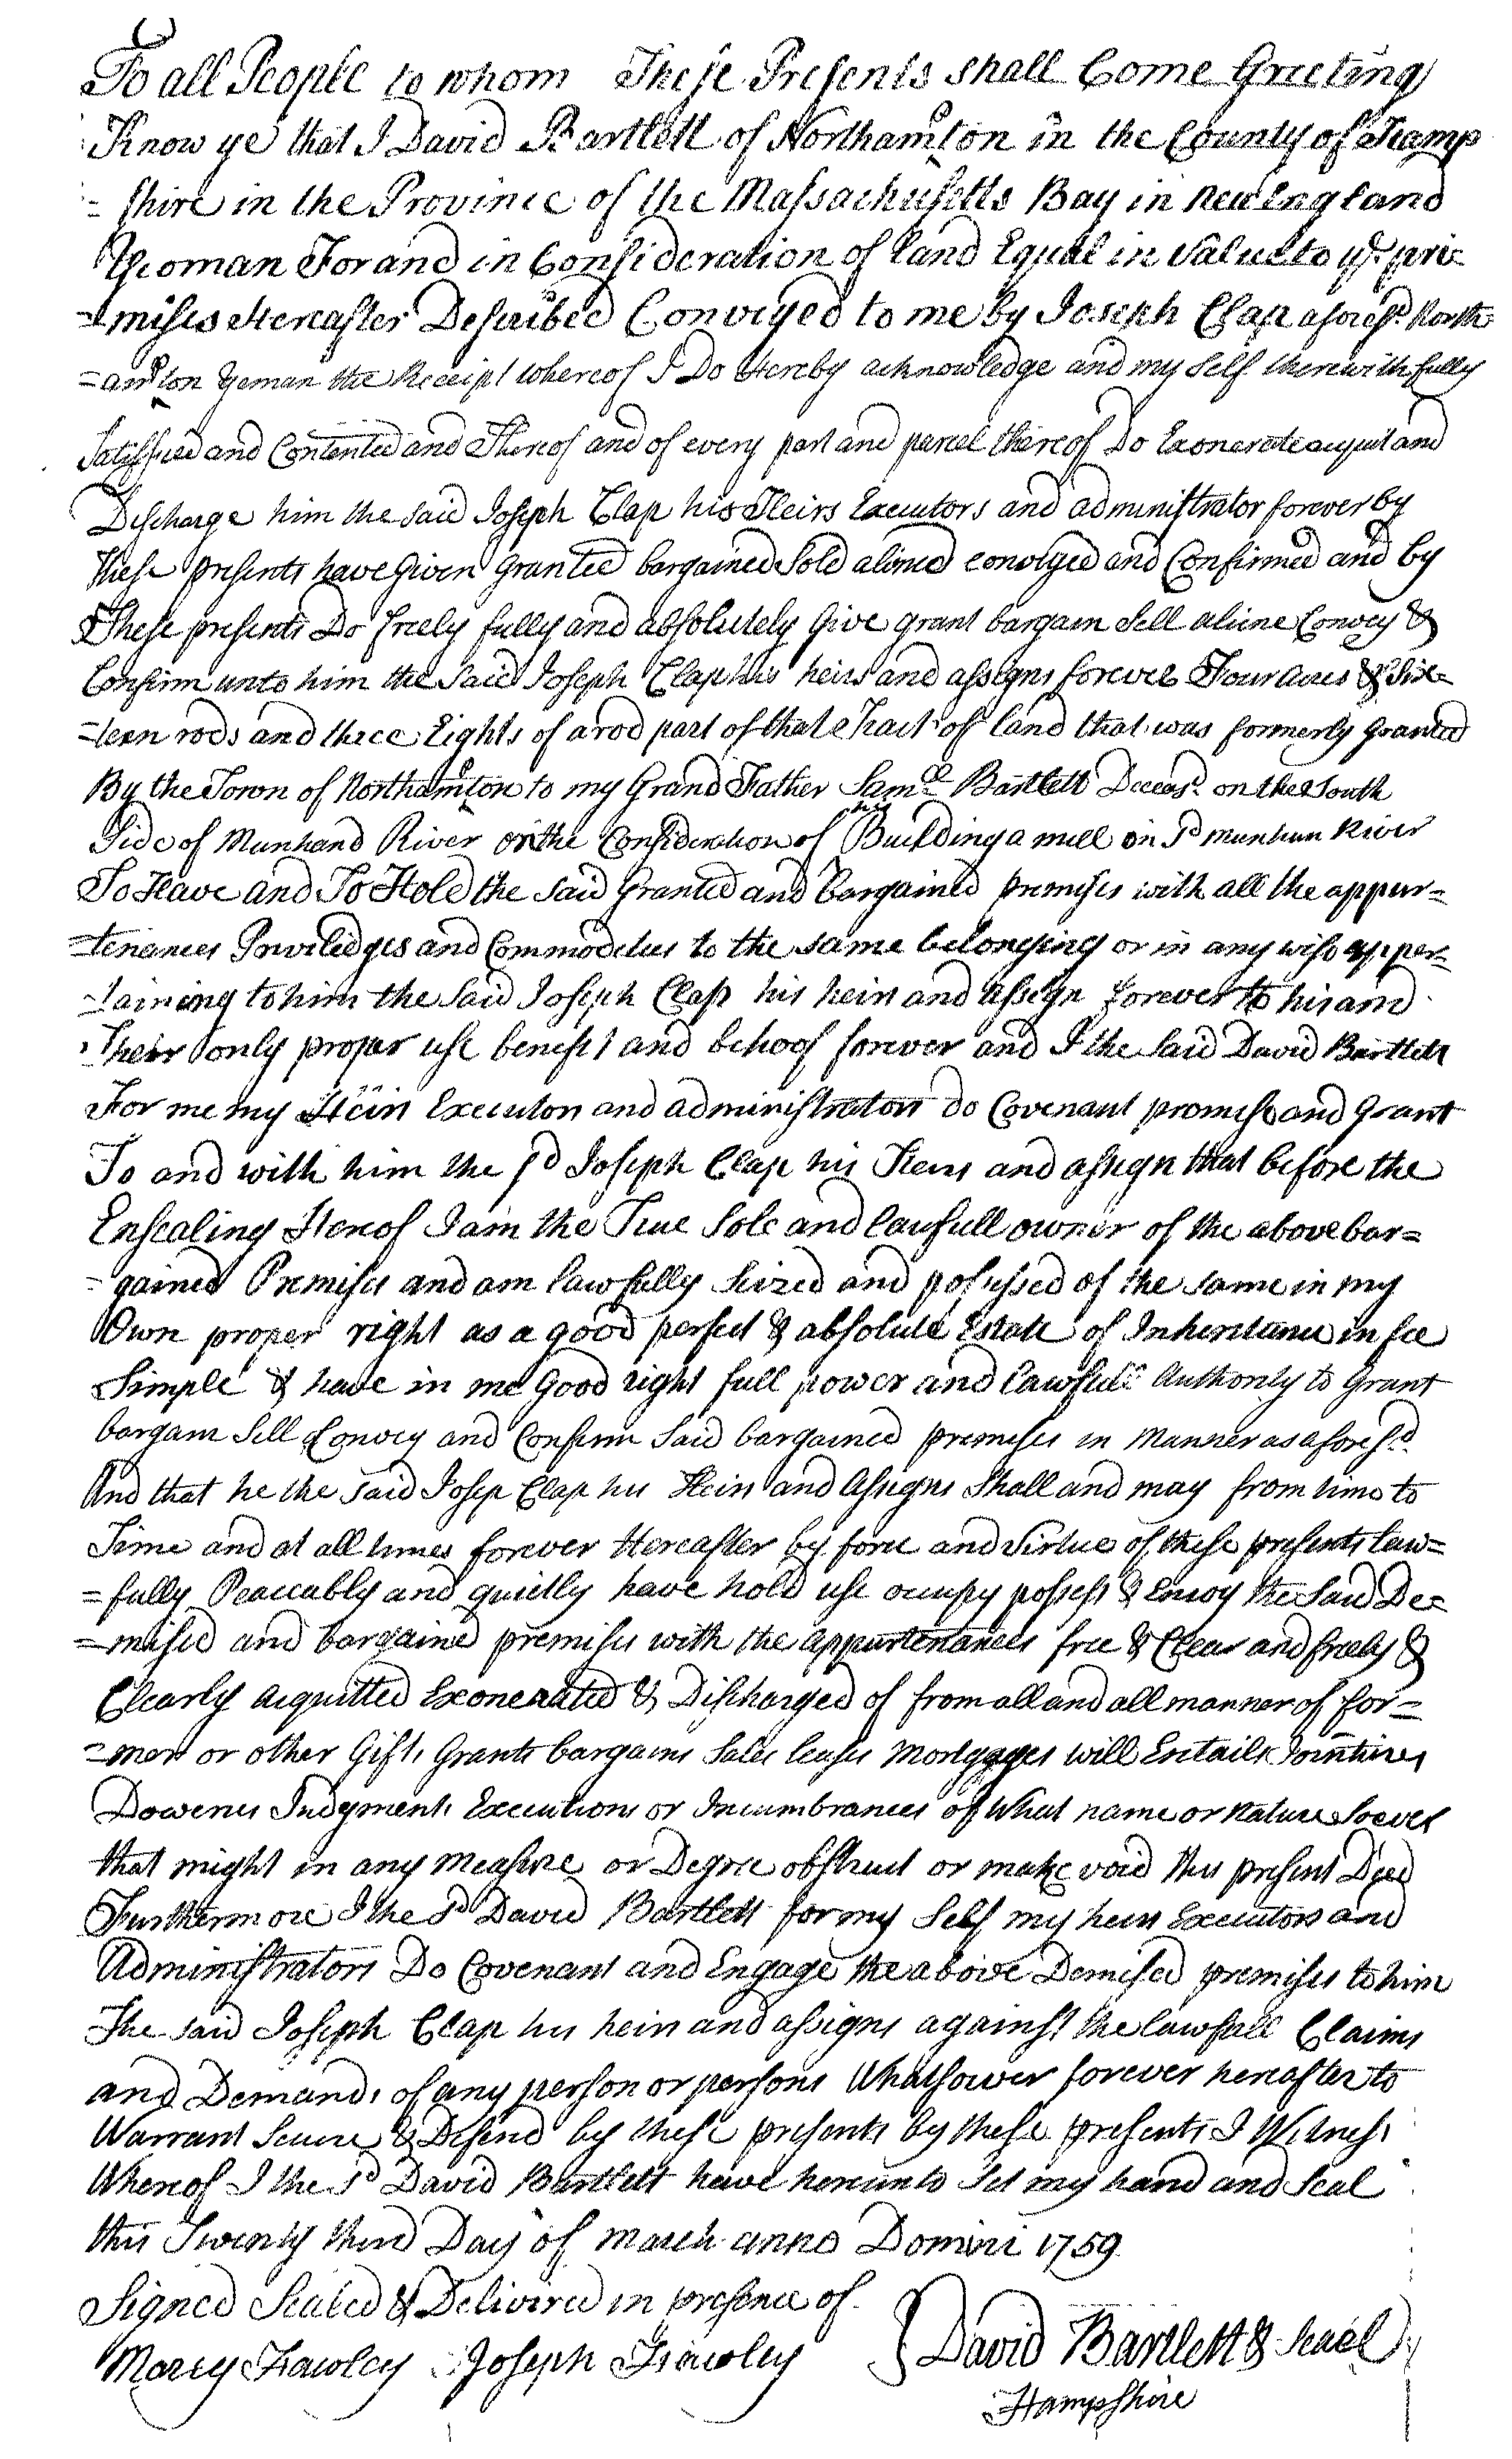 To all People to whom These Presents shall Come Greeting
Know ye that I David Bartlett of Northampton in the County of Hamp
= shire in the Province of the Massachusetts Bay in New England
Yeoman For and in Consideration of Land Equal in Value to ye pre=
=mises Hereafter Described Conveyed to me by Joseph Clap aforesd. North=
=ampton Yeman the Receipt whereof I Do Hereby acknowledge and my Self therewith fully
Satisfied and Contented and Thereof and of every part and parcel thereof Do Exonerate acquit and
Discharge him the said Joseph Clap his Heirs Executors and administrator forever by
these presents have Given Granted bargained Sold aliened conveyed and Confirmed and by
These presents Do freely fully and absolutely Give grant bargain Sell aliene Convey &
Confirm unto him the Said Joseph Clap his heirs and assigns forever Four acres & Six=
=teen rods and three Eights of a rod part of that Tract of land that was formerly Granted
By the Town of Northampton to my Grand Father Saml Bartlett Deceasd. on the South
Side of Munhand River on the Consideration of his Building a mill on sd munhan River
To Have and To Hold the Said Granted and bargained premises with all the appur=
=tenances Priviledges and Commodities to the same belonging or in any wise apper=
=taining to him the Said Joseph Clap his heirs and assign forever to his and
Their only proper use benefit and behoof forever and I the Said David Bartlett
For me my Heirs Executors and administrators do Covenant promise and Grant
To and with him the sd Joseph Clap his Heirs and assign that before the
Ensealing Hereof I am the True Sole and lawfull owner of the above bar=
=gained Premises and am lawfully Seized and posessed of the same in my
Own proper right as a good perfect & absolute Estate of Inheritance in fee
Simple & have in me Good right full power and lawfull Authority to Grant
bargain Sell Convey and Confirm Said bargained premises in Manner as aforesd.
And that he the said Josep Clap his Heirs and Assigns Shall and may from time to
Time and at all times forever Hereafter by force and Virtue of these presents law=
=fully Peaceably and quietly have hold use occupy possess & Enioy the Said De=
=mised and bargained premises with the appurtenances free & Clear and freely &
Clearly acquitted Exonerated & Discharged of from all and all manner of for=
=mer or other Gifts Grants bargains Sales leases Mortgages will Entails Jointures
Doweries Judgments Executions or Incumbrances of What name or Nature Soever
that might in any measure or Degree obstruct or make void this present Deed
Furthermore I the sd David Bartlett for my Self my heirs Executors and
Administrators Do Covenant and Engage the above Demised premises to him
The said Joseph Clap his heirs and assigns against the lawfull Claims
and Demands of any person or persons Whatsoever forever hereafter to
Warrant Secure & Defend by these presents by these presents I Witness
Whereof I the sd David Bartlett have hereunto Set my hand and Seal
this Twenty third Day of march anno Domini 1759
Signed Sealed & Delivered in presence of
Marcy Hawley Joseph Hawley David Bartlett & Seael
Hampshire